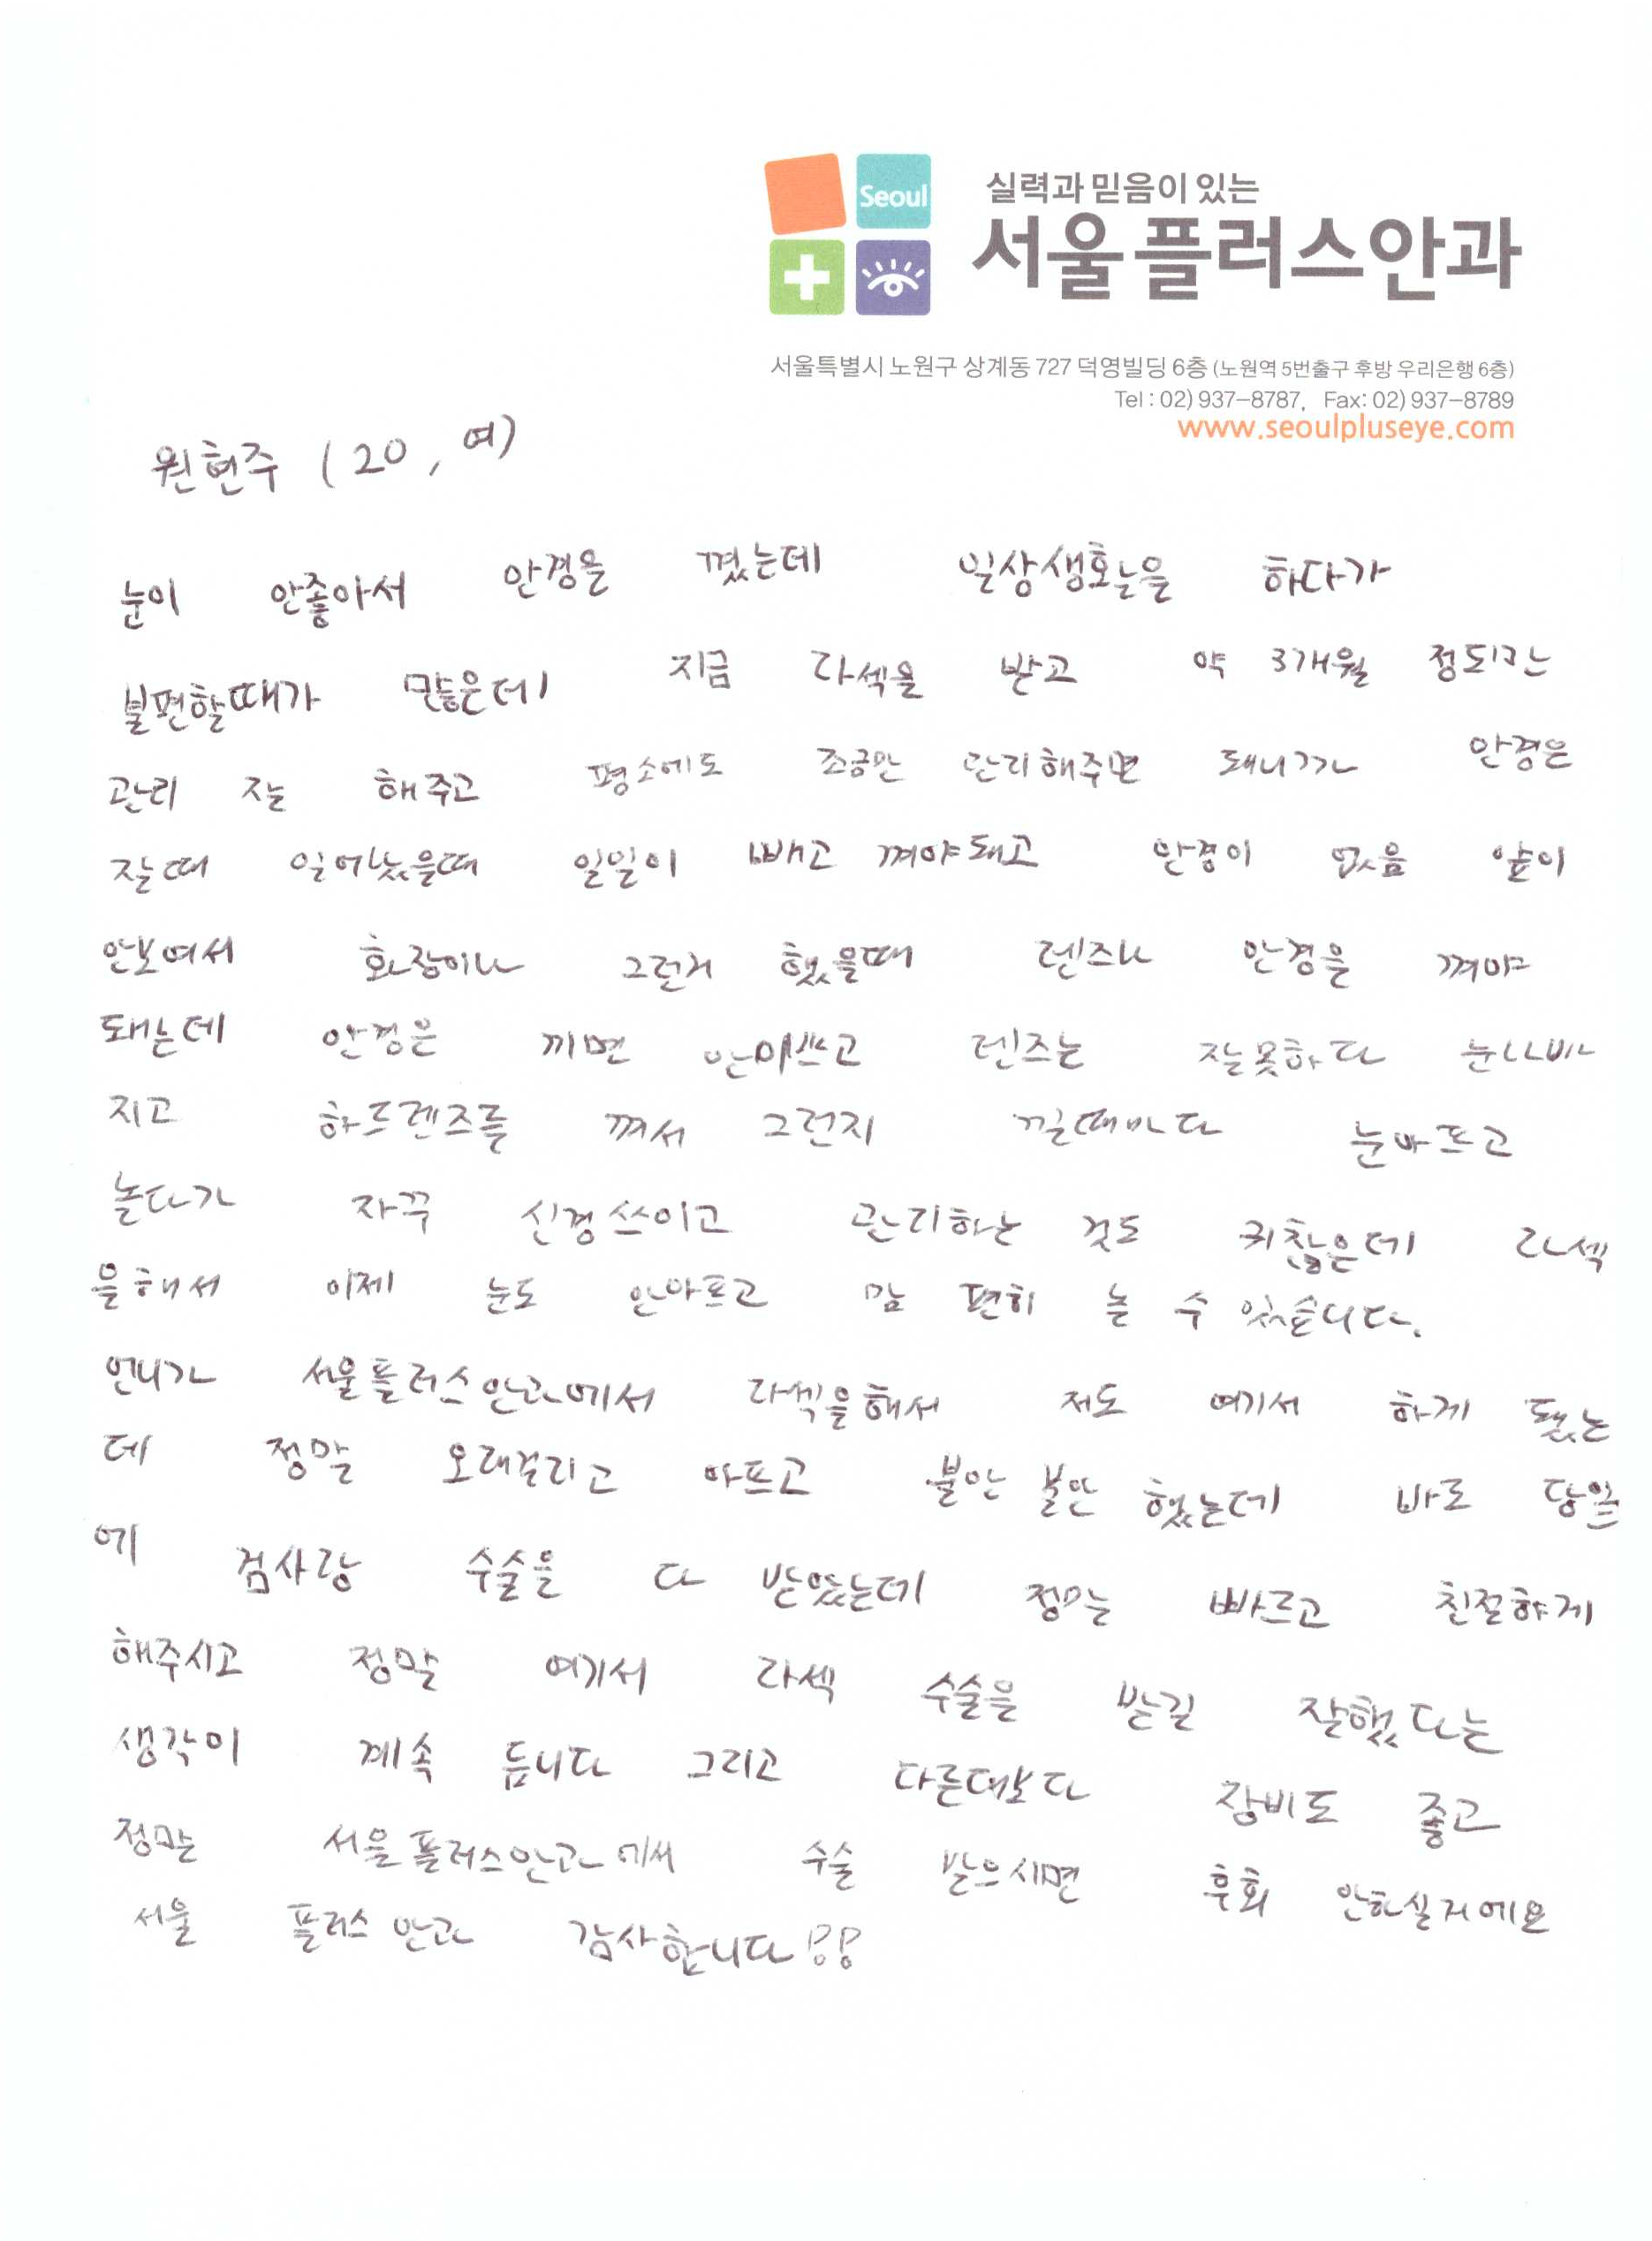 Seoul
실력과 믿음이 있는
서울플러스안과
서울특별시 노원구 상계동 727 덕영빌딩 6층 (노원역 5번출구 후방 우리은행 6층)
Tel : 02) 937-8787, Fax: 02) 937-8789
www.seoulpluseye.com
원현주 (20, 여)
눈이 안좋아서 안경을 꼈는데 일상생활을 하다가
불편할때가 많은데 지금 라섹을 받고 약 3개월 정도만
관리 잘 해주고 평소에도 조금만 관리해주면 돼니까 안경은
잘때 일어났을때 일일이 빼고 껴야돼고 안경이 없음 앞이
안보여서 화장이나 그런거 했을때 렌즈나 안경을 껴야
돼는데 안경은 끼면 안이쁘고 렌즈는 잘못하다 눈나빠
지고 하드렌즈를 껴서 그런지 낄때마다 눈아프고
놀다가 자꾸 신경쓰이고 관리하는 것도 귀찮은데 라섹
을해서 이제 눈도 안아프고 맘 편히 놀 수 있습니다.
언니가 서울플러스안과에서 라섹을해서 저도 여기서 하게 됐는
데 정말 오래걸리고 아프고 불안 불안 했는데 바로 당일
에 검사랑 수술을 다 받았는데 정말 빠르고 친절하게
해주시고 정말 여기서 라섹 수술을 받길 잘했다는
생각이 계속 듭니다 그리고 다른데보다 장비도 좋고
정말 서울플러스안과에서 수술 받으시면 후회 안하실거에요
서울 플러스 안과 감사합니다!!